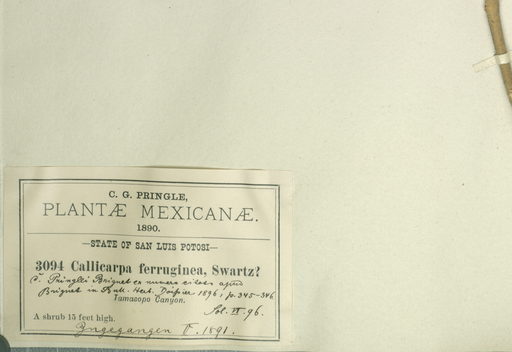 C. G. PRINGLE,
PLANTÆ MEXICANÆ.
1890.
—STATE OF SAN LUIS POTOSI—
3094 Callicarpa ferruginea, Swartz?
C. Pringlei Briquet ex numero citato apud
Briquet in Bull. Herb. Boissier 1896, p. 345-346
Tamasopo Canyon.
Sol. VI. 96.
A shrub 15 feet high.
Ingegangen V. 1891.